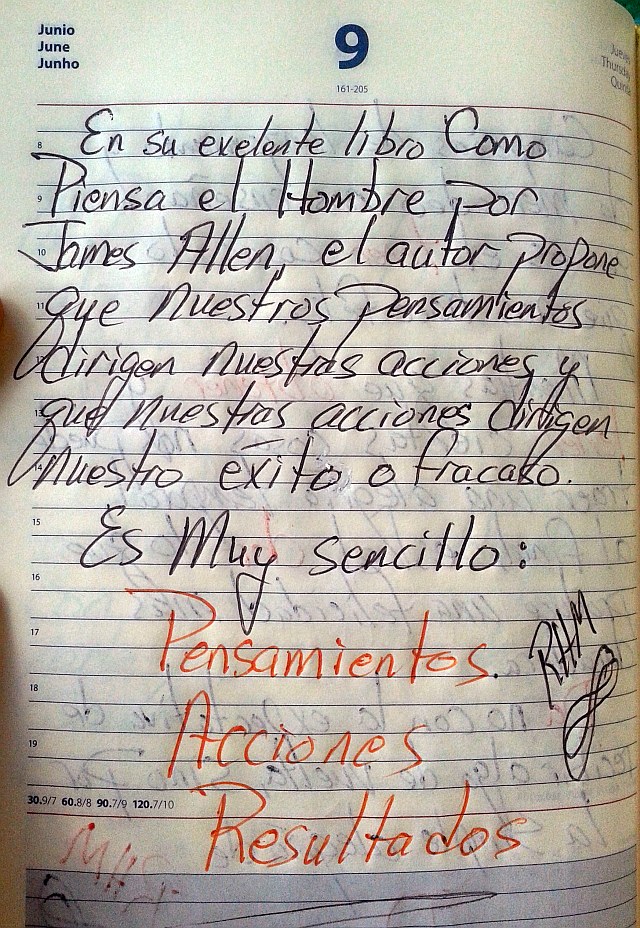 Junio
June
Junho
9
161-205
Jueves
Thursday
8 En su exelente libro Como
9 Piensa el Hombre por
10 James Allen, el autor propone
11 que nuestros pensamientos
12 dirigen nuestras acciones y
13 que nuestras acciones dirigen
14 nuestro exito o fracaso.
15 Es Muy sencillo:
16
17 Pensamientos.
RHM
18 Acciones
19
30.9/7 60.8/8 90.7/9 120.7/10
Resultados